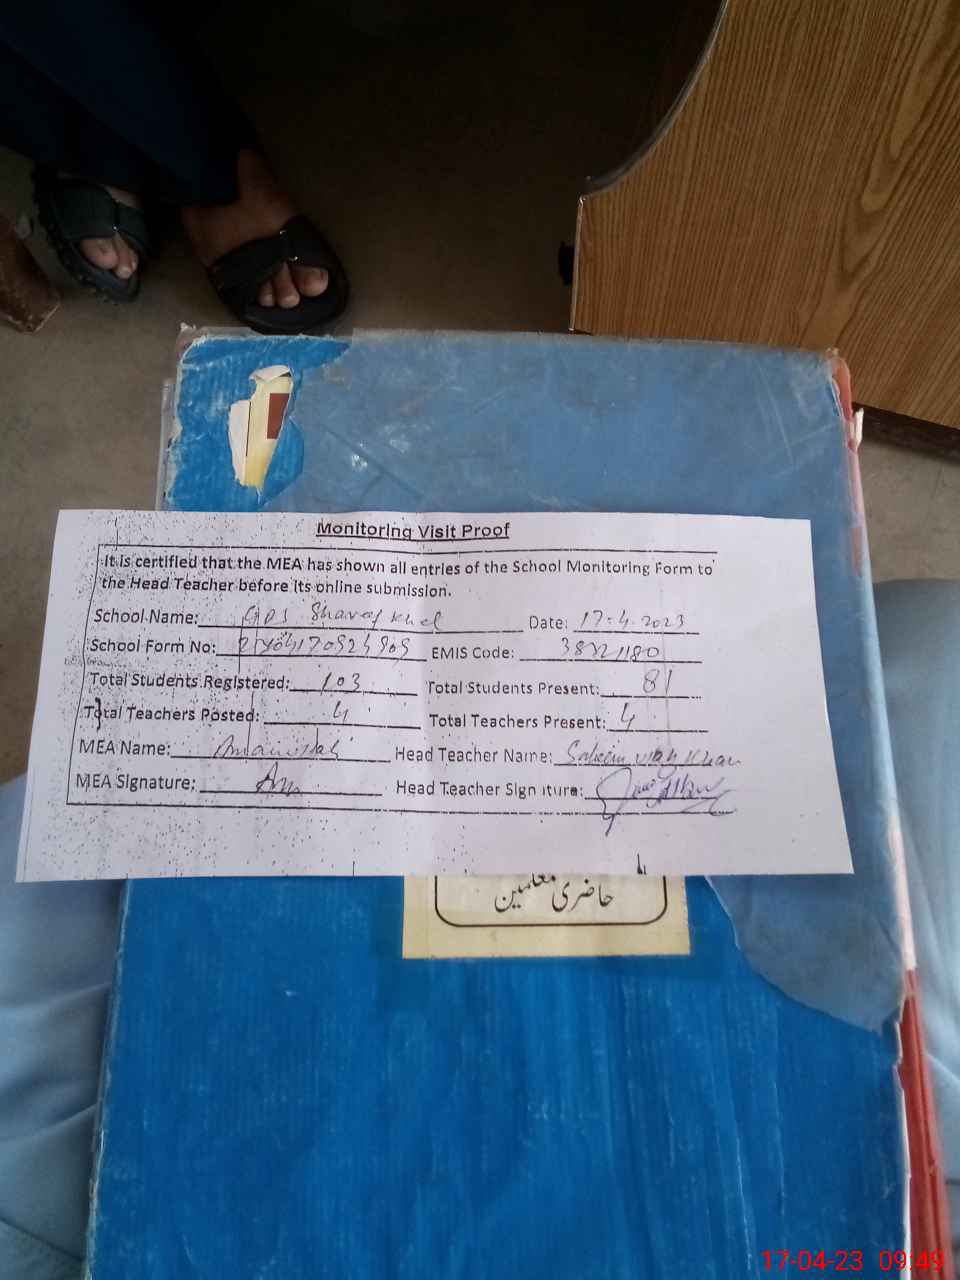 Monitoring Visit Proof
It is certified that the MEA has shown all entries of the School Monitoring Form to
the Head Teacher before its online submission.
School Name: GPS Sharaf Khel Date: 17-4-2023
School Form No: EMIS Code:
Total Students Registered: 103 Total Students Present: 81
Total Teachers Posted: 4 Total Teachers Present: 4
MEA Name: Amanullah Head Teacher Name: Saleem ullah Khan
MEA Signature: Head Teacher Signature:
حاضری معلمین
17-04-23 09:49